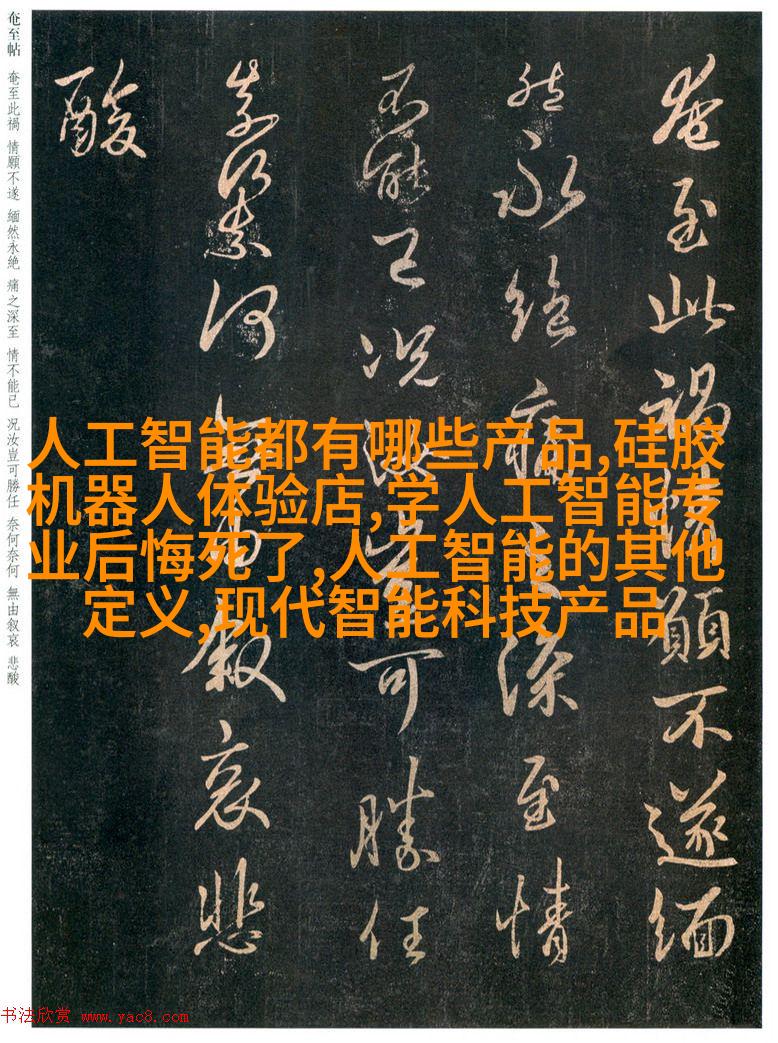 奄至此禍情願不遂緬
然永絶痛之深至情
不能已况汝豈可勝任
奈何奈何無由叙哀悲
酸
奄至帖 奄至此禍 情願不遂 緬然永絶 痛之深至 情不能已 况汝豈可勝任 奈何奈何 無由叙哀 悲酸
人工智能都有哪些产品,硅胶
机器人体验店,学人工智能专
业后悔死了,人工智能的其他
定义,现代智能科技产品
书法欣赏 www.yac8.com